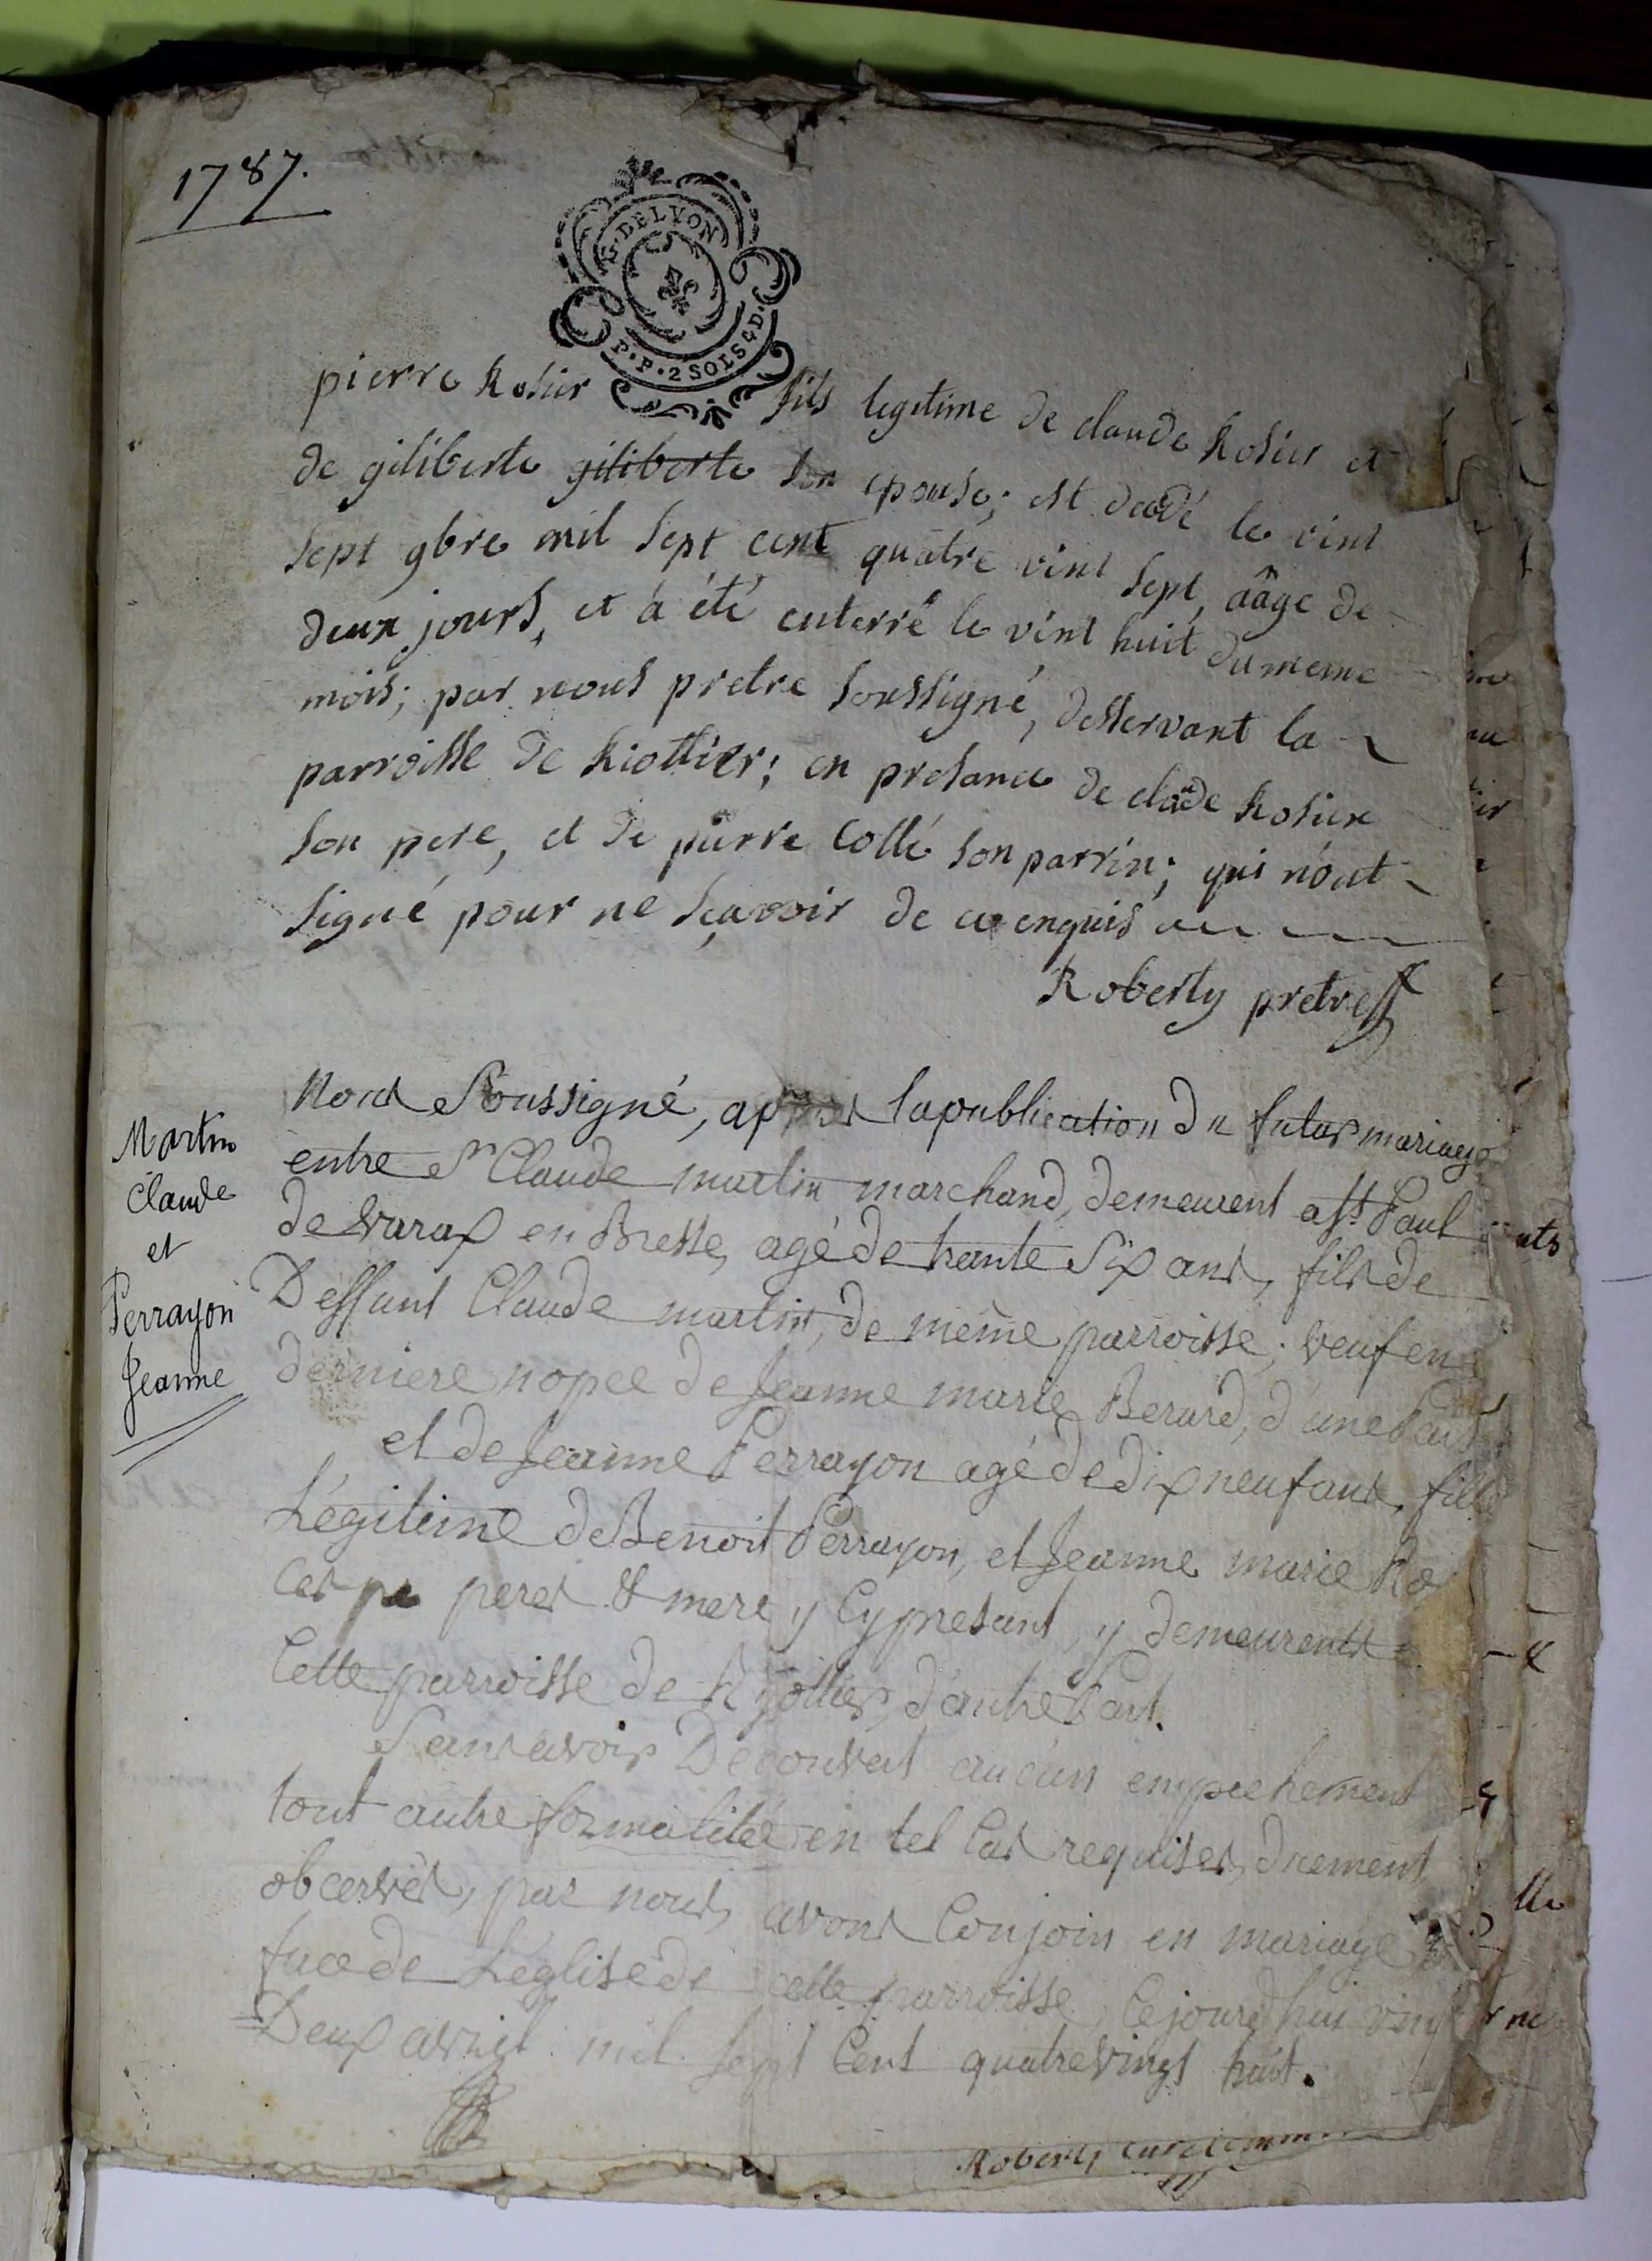 1787.
G. DE LYON
P. P. 2 SOLS 4 D.
pierre Rosier fils legitime de claude Rosier et
de giliberte giliberte son epouse; est decedé le vint
sept 9bre mil sept cent quatre vint sept, aâge de
deux jours, et à été enterré le vint huit du meme
mois; par nous pretre soussigné, desservant la
parroisse de Riottier; en presance de claude Rosier
son pere, et de pierre Collé son parrin; qui n'ont
signé pour ne sçavoir de ce enquis
Roberty pretre
Martin
Claude
et
Perrayon
Jeanne
Nous Soussigné, apres la publication du futur mariage
entre Sr Claude martin marchand, demeurent a St Paul
de Varax en Bresse, agé de trante Six ans, fils de
Deffunt Claude martin, de même parroisse; veuf en
derniere nopce de Jeanne marie Berard, d'une Part
et de Jeanne Perrayon agé de dix neuf ans, fille
Légitime de Benoit Perrayon, et Jeanne marie
ces peres & mere y Cy presant, y demeurents
Cette parroisse de Ryottier, d'autre Part.
Sans avoir Decouvert aucun empechement
tout autre formalitée en tel Cas requises, duement
obcervés, par nous, avons Conjoin en mariage
face de L'église de cette parroisse, Cejourd'hui vingt
=Deux avril mil Sept Cent quatrevingt huit.
Roberty curé